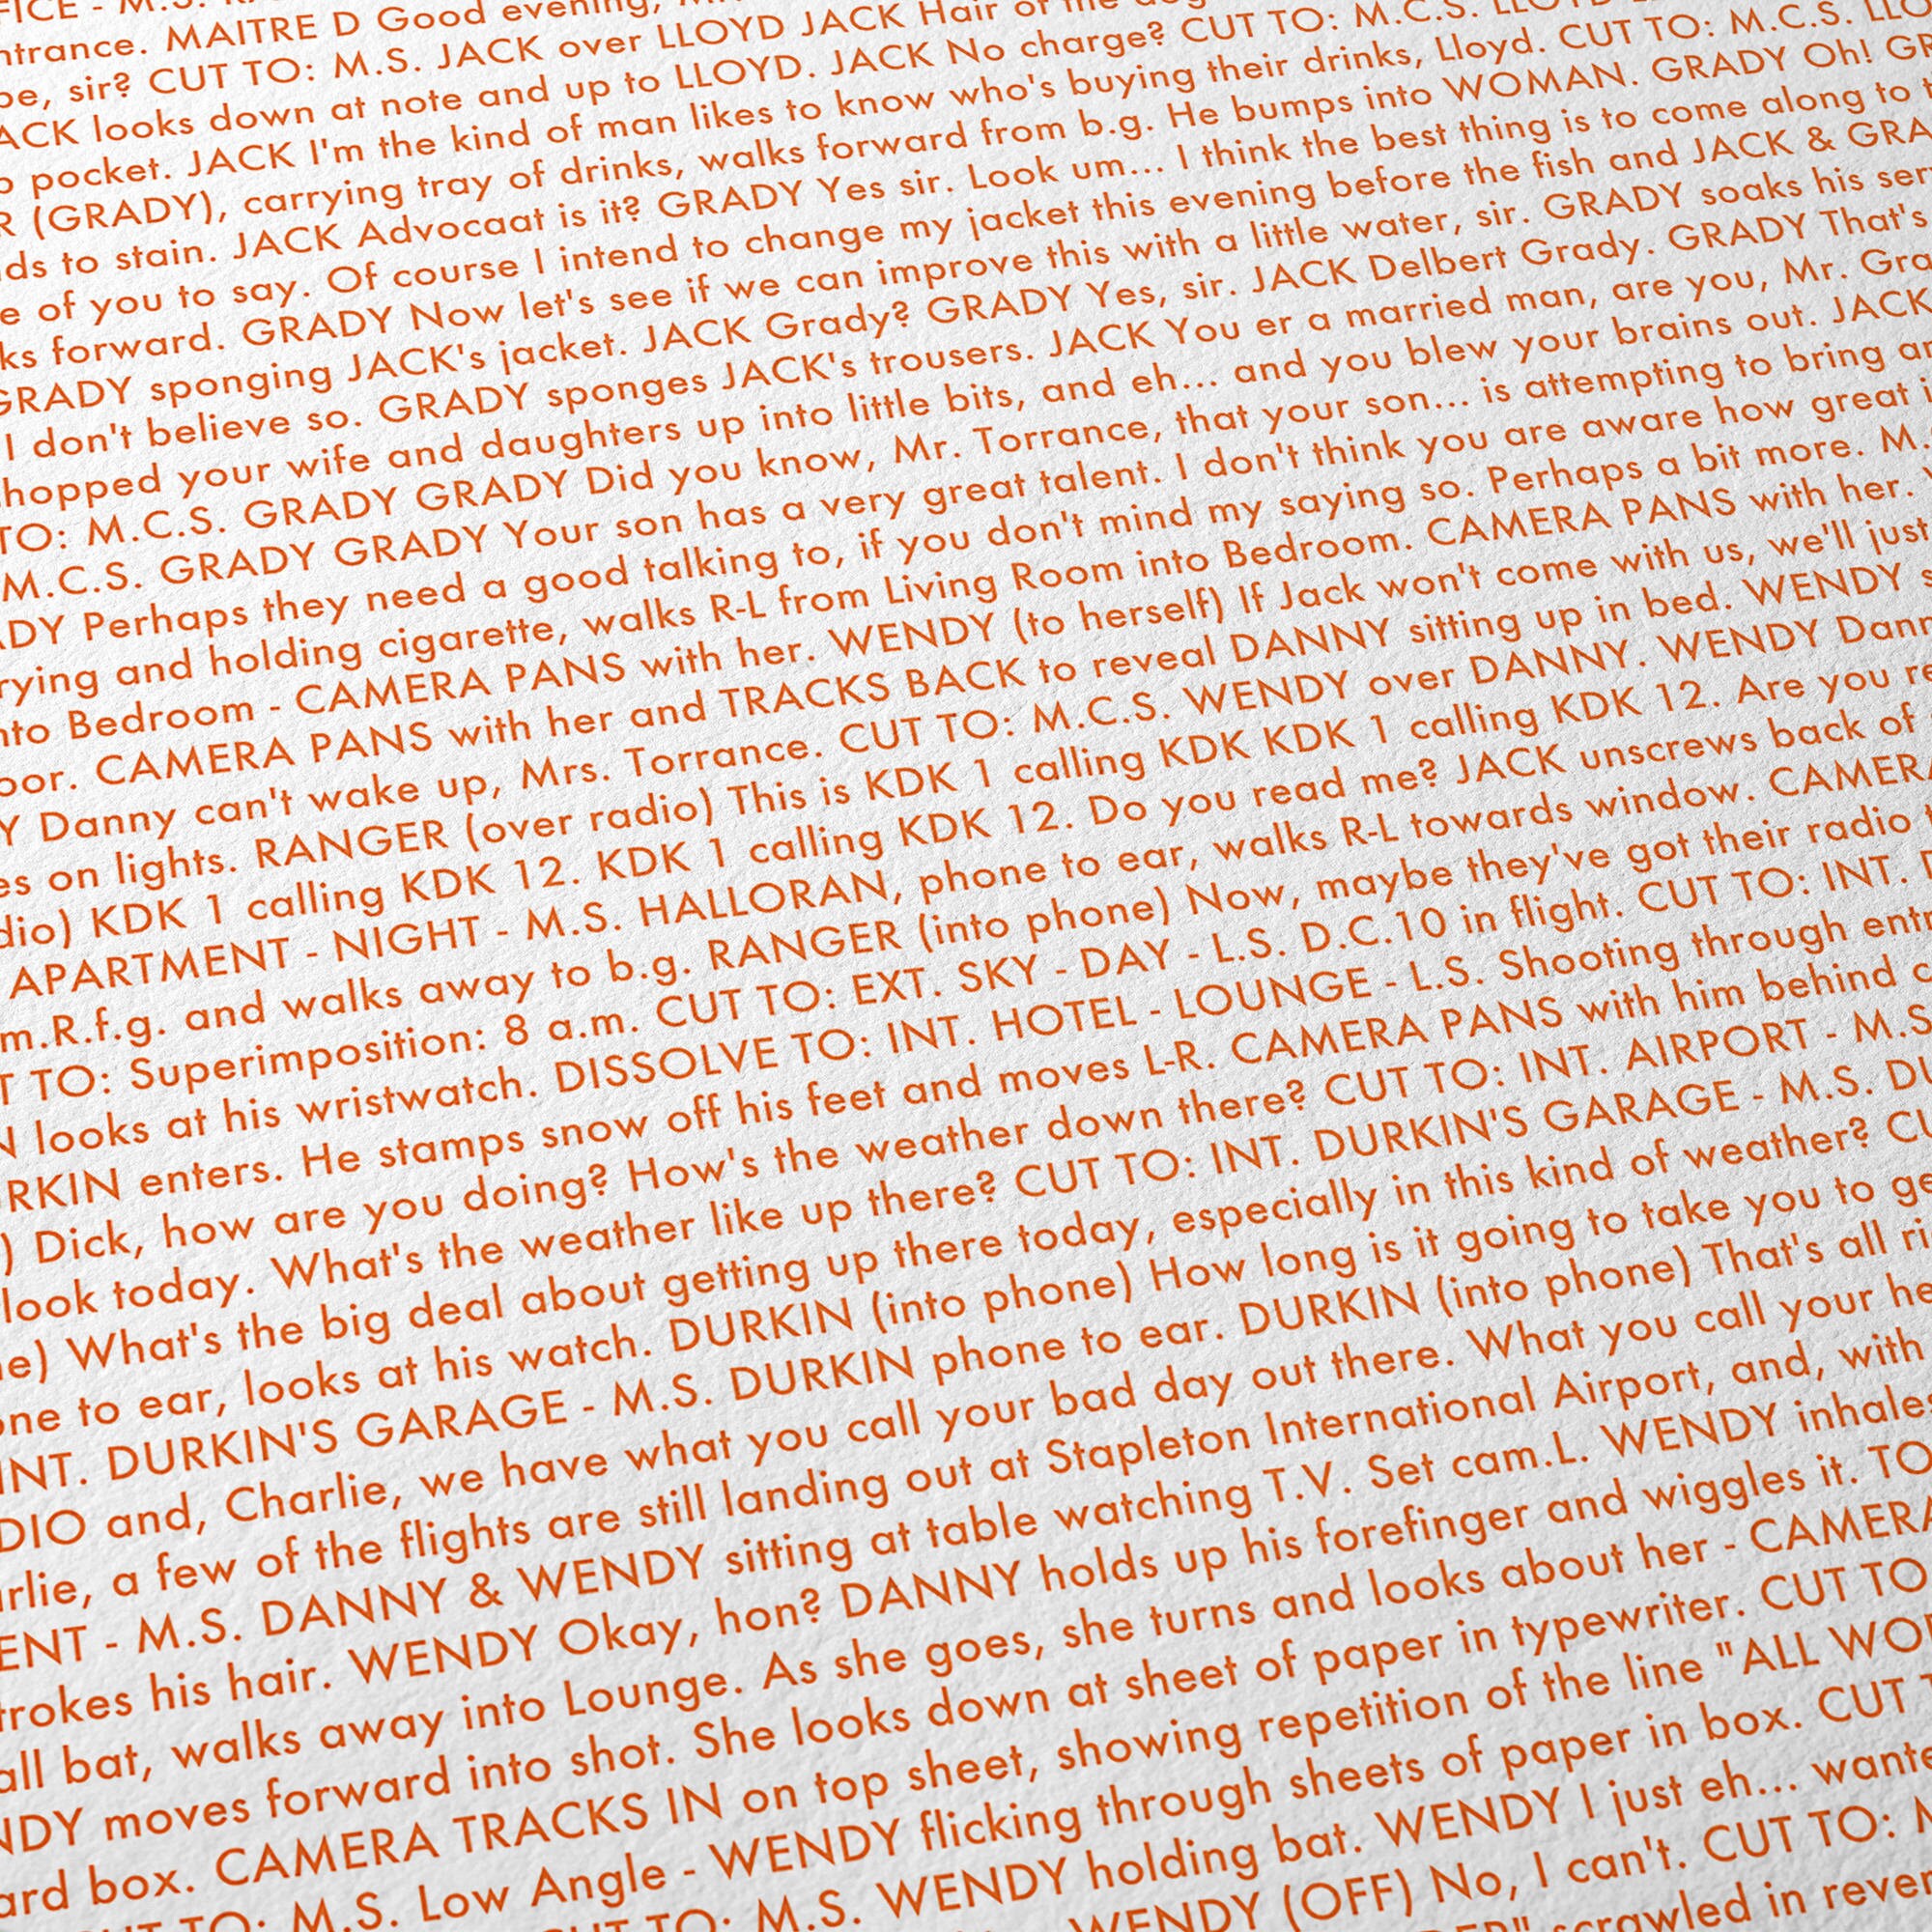 FICE - M.S.
ntrance. MAITRE D Good evening,
be, sir? CUT TO: M.S. JACK over LLOYD JACK Hair of the dog
ACK looks down at note and up to LLOYD. JACK No charge? CUT TO: M.C.S.
o pocket. JACK I'm the kind of man likes to know who's buying their drinks, Lloyd. CUT TO: M.C.S. LLO
R (GRADY), carrying tray of drinks, walks forward from b.g. He bumps into WOMAN. GRADY Oh! GR
ds to stain. JACK Advocaat is it? GRADY Yes sir. Look um... I think the best thing is to come along to t
e of you to say. Of course I intend to change my jacket this evening before the fish and JACK & GRA
ks forward. GRADY Now let's see if we can improve this with a little water, sir. GRADY soaks his ser
GRADY sponging JACK's jacket. JACK Grady? GRADY Yes, sir. JACK Delbert Grady. GRADY That's
I don't believe so. GRADY sponges JACK's trousers. JACK You er a married man, are you, Mr. Gra
hopped your wife and daughters up into little bits, and eh... and you blew your brains out. JACK
TO: M.C.S. GRADY GRADY Did you know, Mr. Torrance, that your son... is attempting to bring an
M.C.S. GRADY GRADY Your son has a very great talent. I don't think you are aware how great i
ADY Perhaps they need a good talking to, if you don't mind my saying so. Perhaps a bit more. M.
rying and holding cigarette, walks R-L from Living Room into Bedroom. CAMERA PANS with her.
nto Bedroom - CAMERA PANS with her. WENDY (to herself) If Jack won't come with us, we'll just
oor. CAMERA PANS with her and TRACKS BACK to reveal DANNY sitting up in bed. WENDY s
Y Danny can't wake up, Mrs. Torrance. CUT TO: M.C.S. WENDY over DANNY. WENDY Dann
es on lights. RANGER (over radio) This is KDK 1 calling KDK KDK 1 calling KDK 12. Are you re
dio) KDK 1 calling KDK 12. KDK 1 calling KDK 12. Do you read me? JACK unscrews back of
APARTMENT - NIGHT - M.S. HALLORAN, phone to ear, walks R-L towards window. CAMERA
m.R.f.g. and walks away to b.g. RANGER (into phone) Now, maybe they've got their radio
T TO: Superimposition: 8 a.m. CUT TO: EXT. SKY - DAY - L.S. D.C.10 in flight. CUT TO: INT.
N looks at his wristwatch. DISSOLVE TO: INT. HOTEL - LOUNGE - L.S. Shooting through entr
RKIN enters. He stamps snow off his feet and moves L-R. CAMERA PANS with him behind c
) Dick, how are you doing? How's the weather down there? CUT TO: INT. AIRPORT - M.S
look today. What's the weather like up there? CUT TO: INT. DURKIN'S GARAGE - M.S. DU
ne) What's the big deal about getting up there today, especially in this kind of weather? CU
one to ear, looks at his watch. DURKIN (into phone) How long is it going to take you to ge
INT. DURKIN'S GARAGE - M.S. DURKIN phone to ear. DURKIN (into phone) That's all ri
DIO and, Charlie, we have what you call your bad day out there. What you call your he
rlie, a few of the flights are still landing out at Stapleton International Airport, and, with
ENT - M.S. DANNY & WENDY sitting at table watching T.V. Set cam.L. WENDY inhale
trokes his hair. WENDY Okay, hon? DANNY holds up his forefinger and wiggles it. TO
all bat, walks away into Lounge. As she goes, she turns and looks about her - CAMERA
NDY moves forward into shot. She looks down at sheet of paper in typewriter. CUT TO
ard box. CAMERA TRACKS IN on top sheet, showing repetition of the line "ALL WO
CUT TO: M.S. Low Angle - WENDY flicking through sheets of paper in box. CUT
CUT TO: M.S. WENDY holding bat. WENDY I just eh... wante
WENDY (OFF) No, I can't. CUT TO:
scrawled in rever